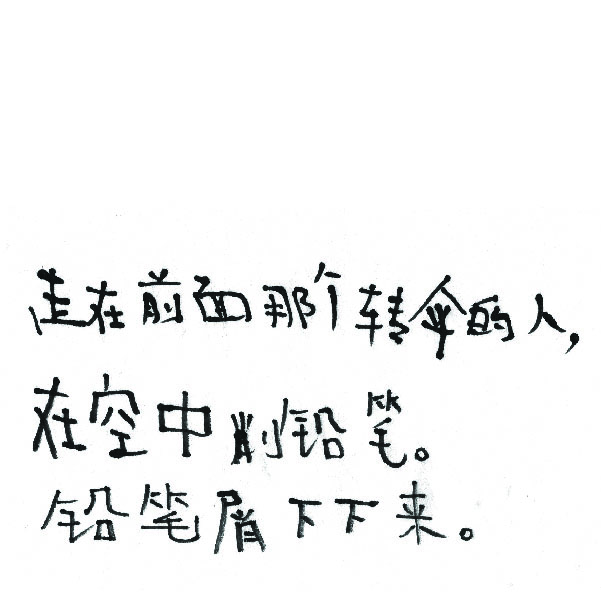 走在前面那个转伞的人，
在空中削铅笔。
铅笔屑下下来。